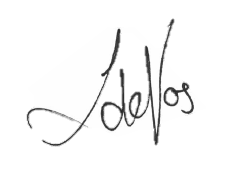 J de Vos